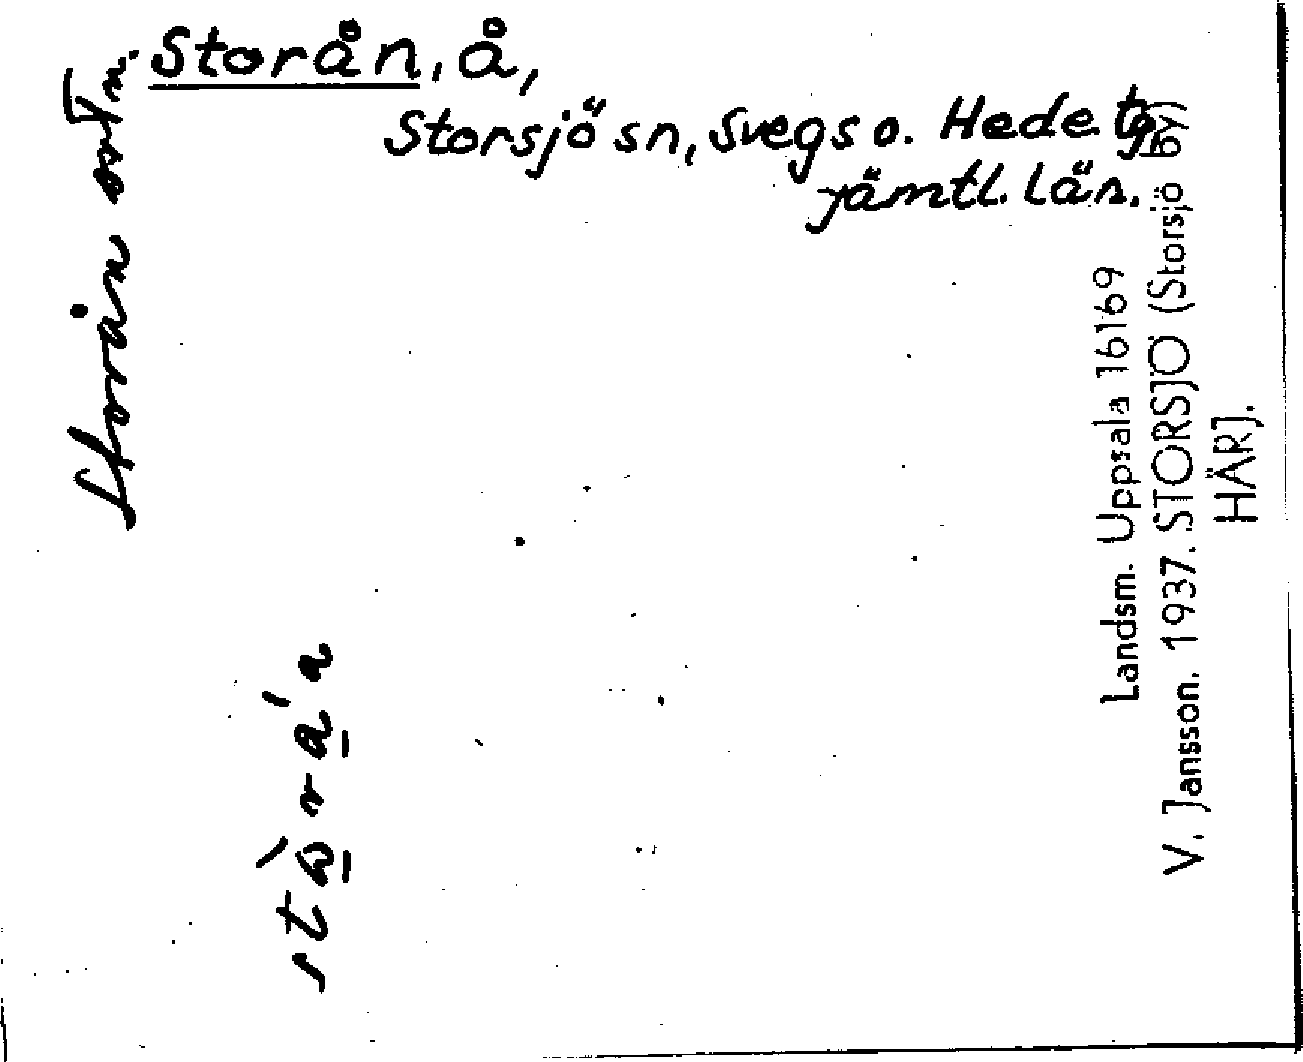 Storån, å,
Storsjö sn, Svegs o. Hede tg
Jämtl. län.
Storån ortn.
stὼra̍a
Landsm. Uppsala 16169
V. Jansson. 1937. STORSJÖ (Storsjö by)
HÄRJ.